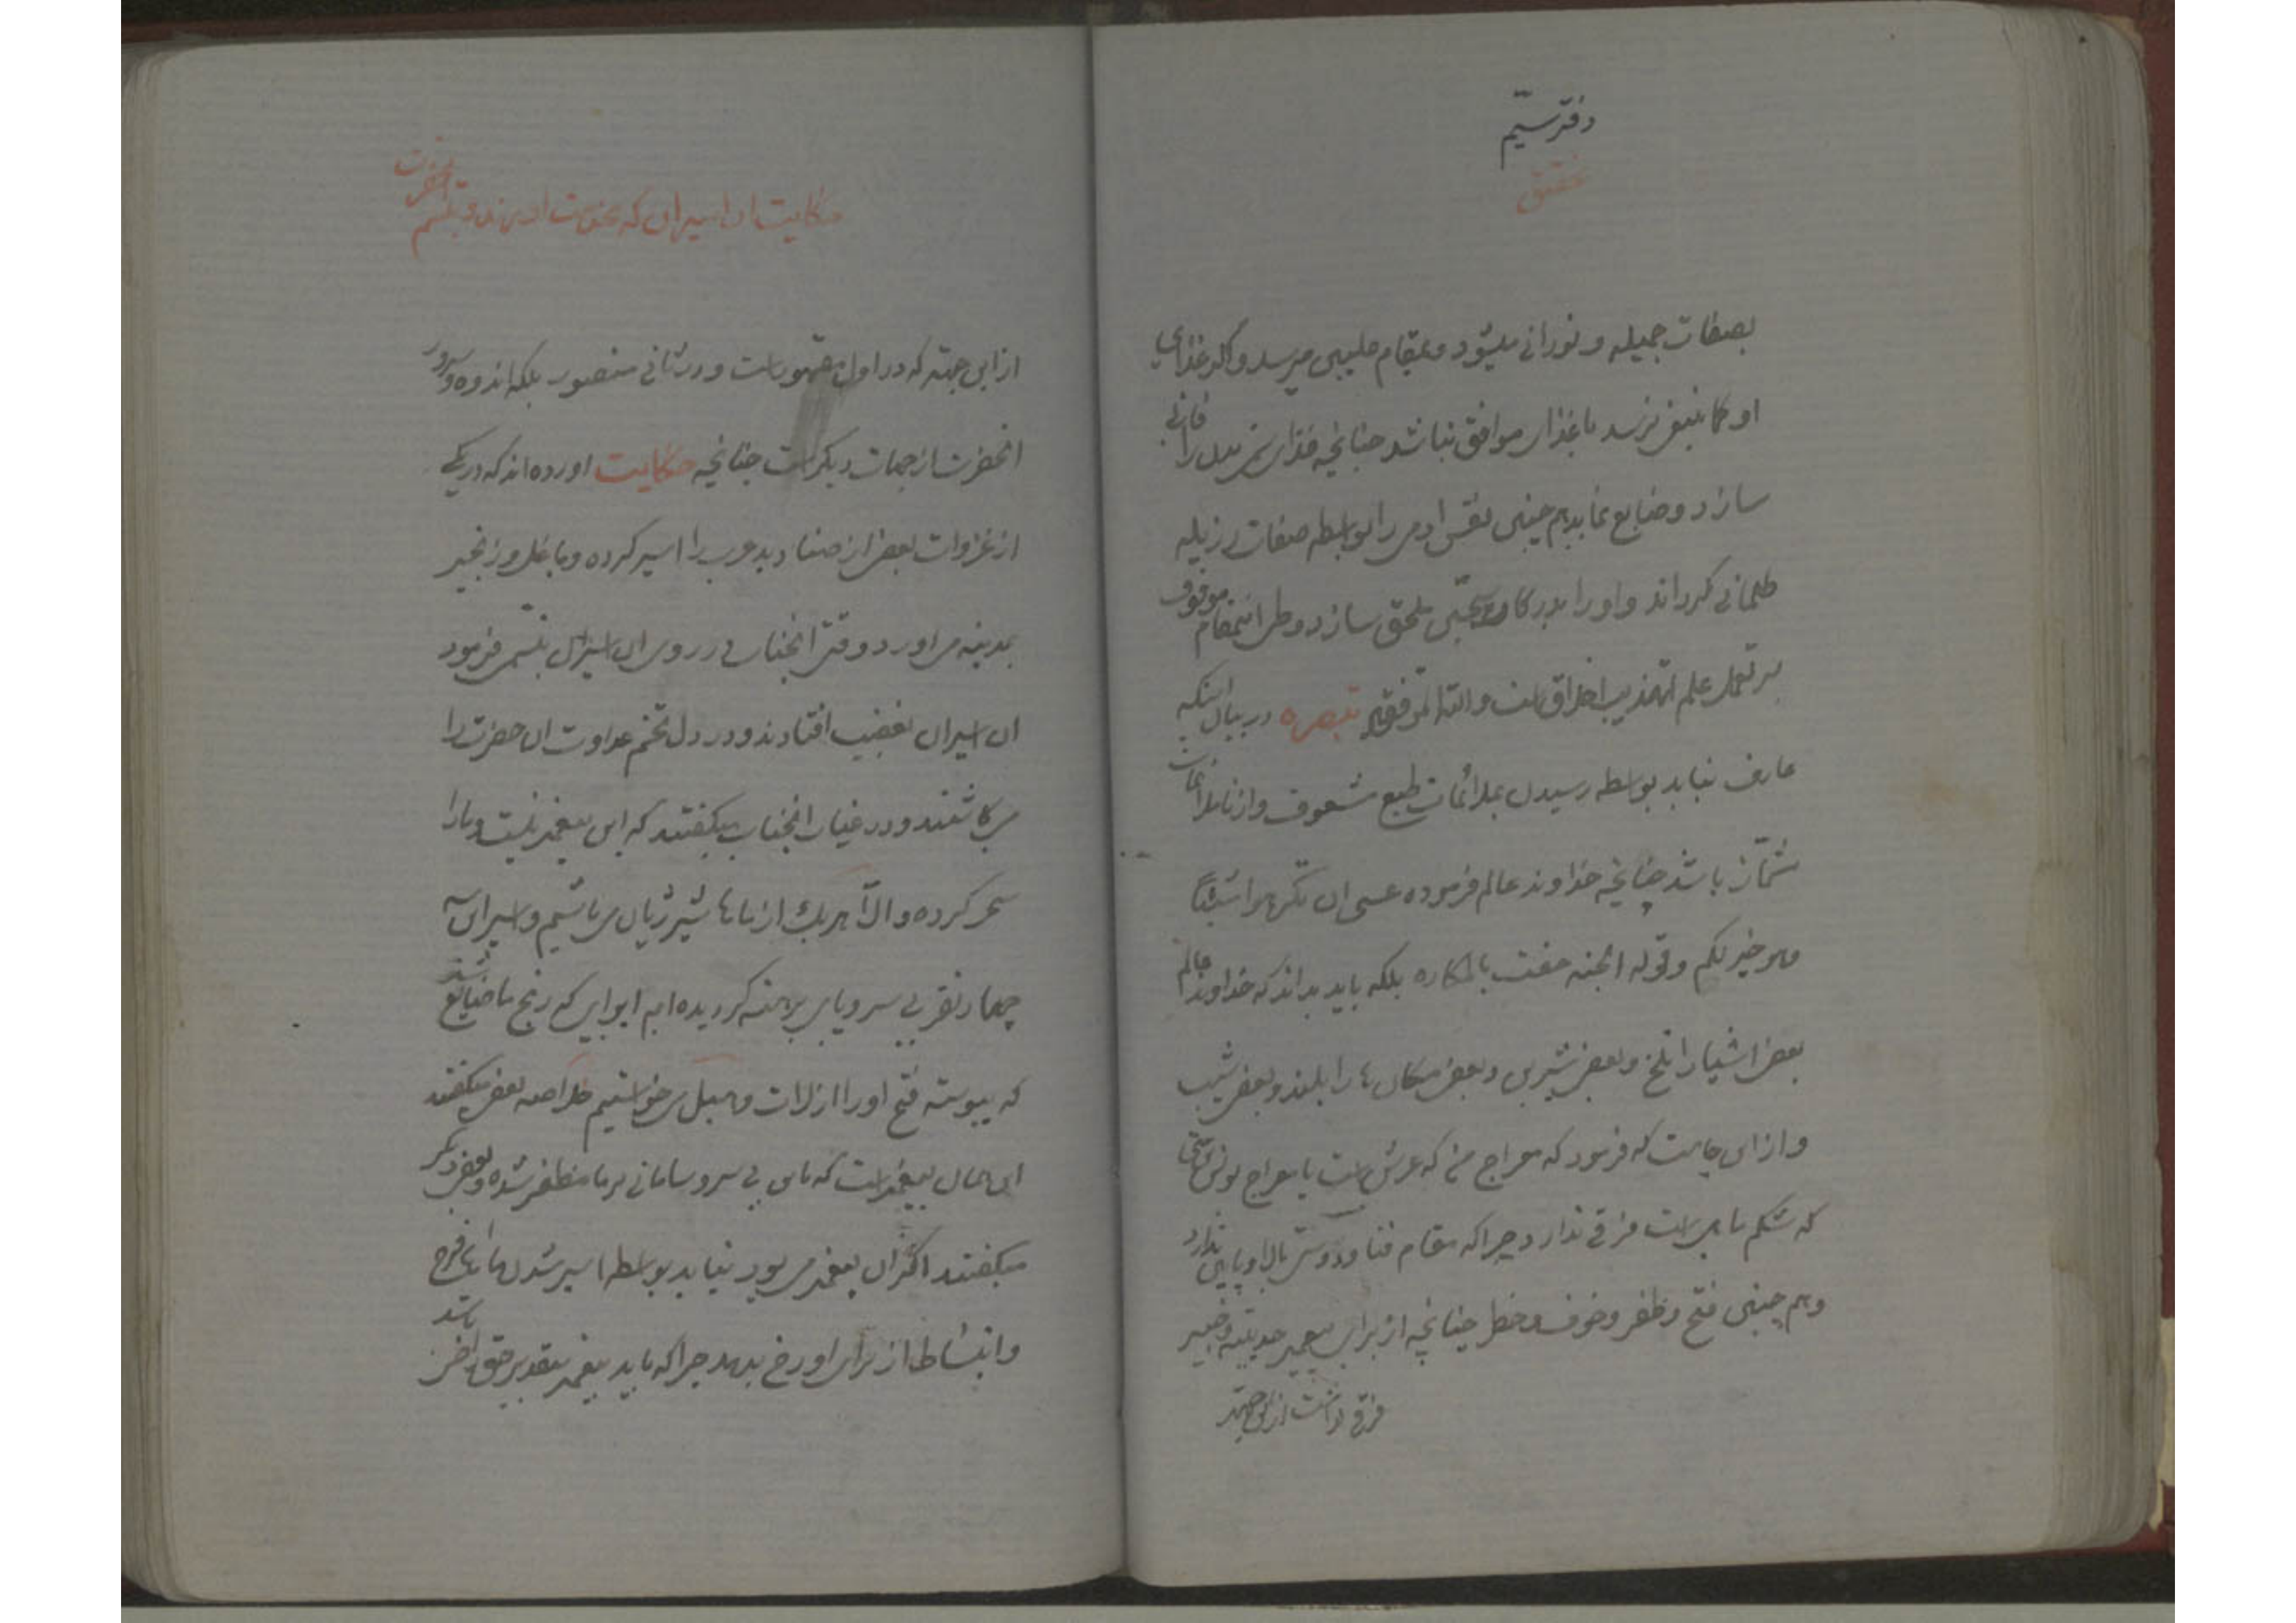 دفتر سیّم
تحقیق
بصفات جمیله و نورانی میشود و بمقام علیین میرسد و اگر غذای
او کما ینبغی نرسد یا غذای موافق نباشد چنانچه غذای بدن را فانی
سازد و ضایع نماید هم چنین نفس ادمی را بواسطه صفات رزیله
ظلمانی کرداند و او را بدرکات سجّین ملحق سازد و طی این مقام موقوف
بر تعمل علم تهذیب اخلاق است والله الموفق تبصره در بیان اینکه
عارف نباید بواسطه رسیدن بملائمات طبع مشعوف و از ناملائمات
مشمأز باشد چنانچه خداوند عالم فرموده عسی ان تکرهوا شیئاً
وهو خیر لکم و قوله الجنه حفت بالمکاره بلکه باید بداند که خداوند عالم
بعض اشیا را تلخ و بعض شیرین و بعض مکان ها را بلند و بعض شیب
و از این جاست که فرمود که معراج من که عرش است با معراج یونس متی
که شکم ماهی است فرقی ندارد چراکه مقام فنا و دوستی بالا و پایین ندارد
و هم چنین فتح و ظفر و خوف و خطر چنانچه از برای پیغمبر حدیبیه و خیبر
فرقی نداشت از این جهته
حکایت ان اسیران که بخدمت اوردند و تبسّم انحضرت
از این جهته که در اول مقهور است و در ثانی منصور بلکه اندوه و سرور
انحضرت از جهات دیکر است چنانچه حکایت اورده اند که در یکی
از غزوات بعض از صنادید عرب را اسیر کرده و با غل و زنجیر
بمدینه می اورد وقتی انجناب در روی ان اسیران تبسّمی فرمود
ان اسیران بغضب افتادند و در دل تخم عداوت ان حضرت را
می کاشتند و در غیاب انجناب میکفتند که این پیغمبر نیست و ما را
سحر کرده و الّا هر یک از ماها شیر ژیان می باشیم و اسیر این سه
چهار نفر بی سر و پای برهنه کردیده ایم ای وای که رنج ما ضایع شد
که پیوسته فتح او را از لات و هبل می خواستیم خلاصه بعض میکفتند
این همان پیغمبر است که با این بی سر و سامانی بر ما مظفر شده و بعض دیکر
میکفتند اگر ان پیغمبر می بود نباید بواسطه اسیر شدن ما این فرح
و انبساط از برای او رخ بدهد چراکه باید پیغمبر بتقدیر حق راضی باشد